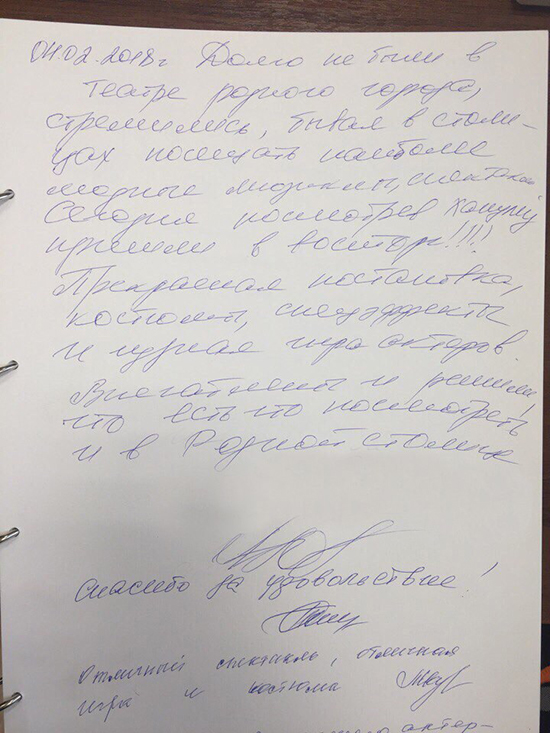 04.02.2018г Долго не были в
театре родного города,
стремились, бывая в столи-
цах посещать наиболее
модные мюзиклы, спектакли
Сегодня посмотрев Хануму
пришли в восторг!!!!
Прекрасная постановка,
костюмы, спецэффекты
и чудная игра актеров.
Впечатлены и решили,
что есть что посмотреть
и в Родной столице
Спасибо за удовольствие!
Отличный спектакль, отличная
игра и костюмы
актер-